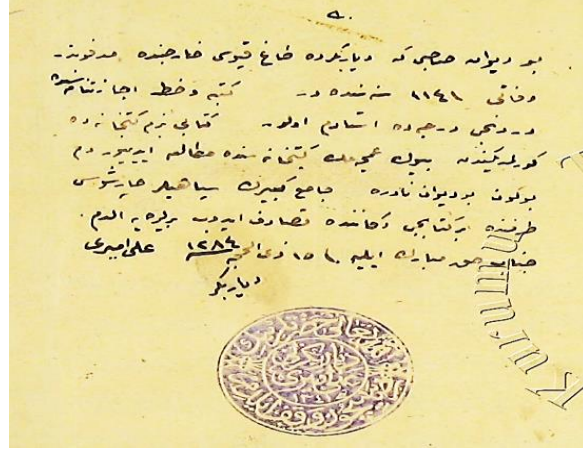 بو ديوان صاحبى كه ديار بكرده طاغ قپوسى خارجنده مدفوندر
وفاتى ١١٤١ سنه سنده در كتبه و خط اجازتنامه سنده
دردنجى درجه ده استادم اولور كتابى بزم كتبخانه ده
كورلمديكندن بيوك عمجه مك كتبخانه سنده مطالعه ايدييوردم
بوكون بو ديوان نادره جامع كبيرك سپاهيلر چارشوسى
طرفنده بر كتابجى دكاننده تصادف ايدوب بر ليرايه آلدم
جناب حق مبارك ايليه ١٥ ذى الحجه ١٢٨٤ على اميرى
ديار بكر
Kurumu